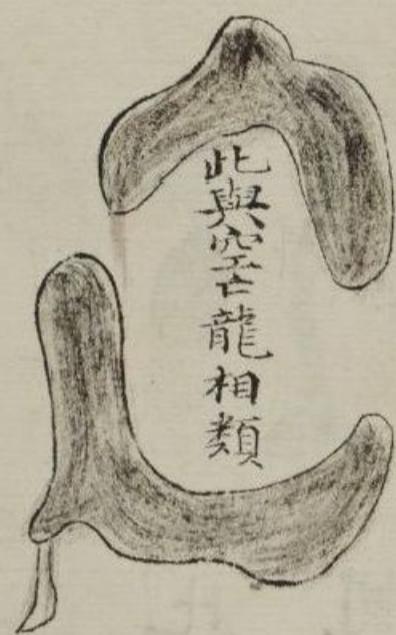 此與空亡龍相類